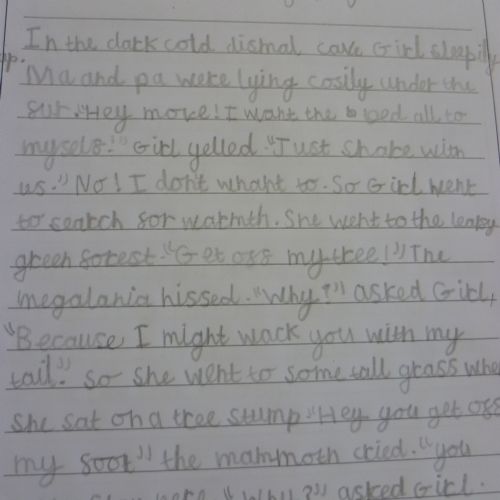 In the dark cold dismal cave Girl sleepily
Ma and pa were lying cosily under the
fur. "Hey move! I want the bed all to
myself!" Girl yelled. "Just share with
us." No! I don't whant to. So Girl went
to search for warmth. She went to the leafy
green forest. "Get off my tree!" The
megalania hissed. "Why?" asked Girl,
"Because I might wack you with my
tail." So she went to some tall grass whe
she sat on a tree stump "Hey you get off
my foot" the mammoth cried. "you
"Why?" asked Girl.